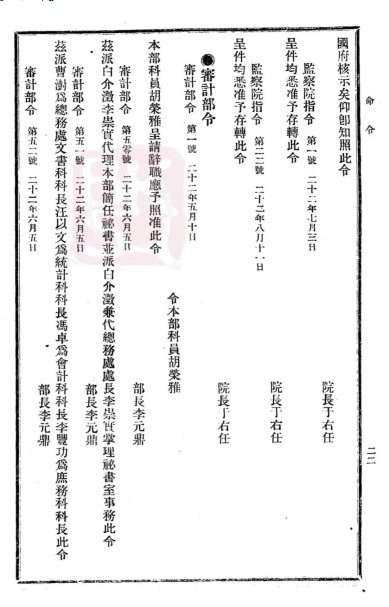 命令
二二
國府核示矣仰卽知照此令
院長于右任
監察院指令 第一號 二十二年七月三日
呈件均悉准予存轉此令
院長于右任
監察院指令 第二三號 二十二年八月十一日
呈件均悉准予存轉此令
院長于右任
審計部令
審計部令 第一號 二十二年五月十日
令本部科員胡榮雅
本部科員胡榮雅呈請辭職應予照准此令
部長李元鼎
審計部令 第五零號 二十二年六月五日
茲派白介澂李崇實代理本部簡任祕書並派白介澂兼代總務處處長李崇實掌理祕書室事務此令
部長李元鼎
審計部令 第五一號 二十二年六月五日
茲派曹澍爲總務處文書科科長汪以文爲統計科科長馮卓爲會計科科長李豐功爲庶務科科長此令
部長李元鼎
審計部令 第五二號 二十二年六月五日